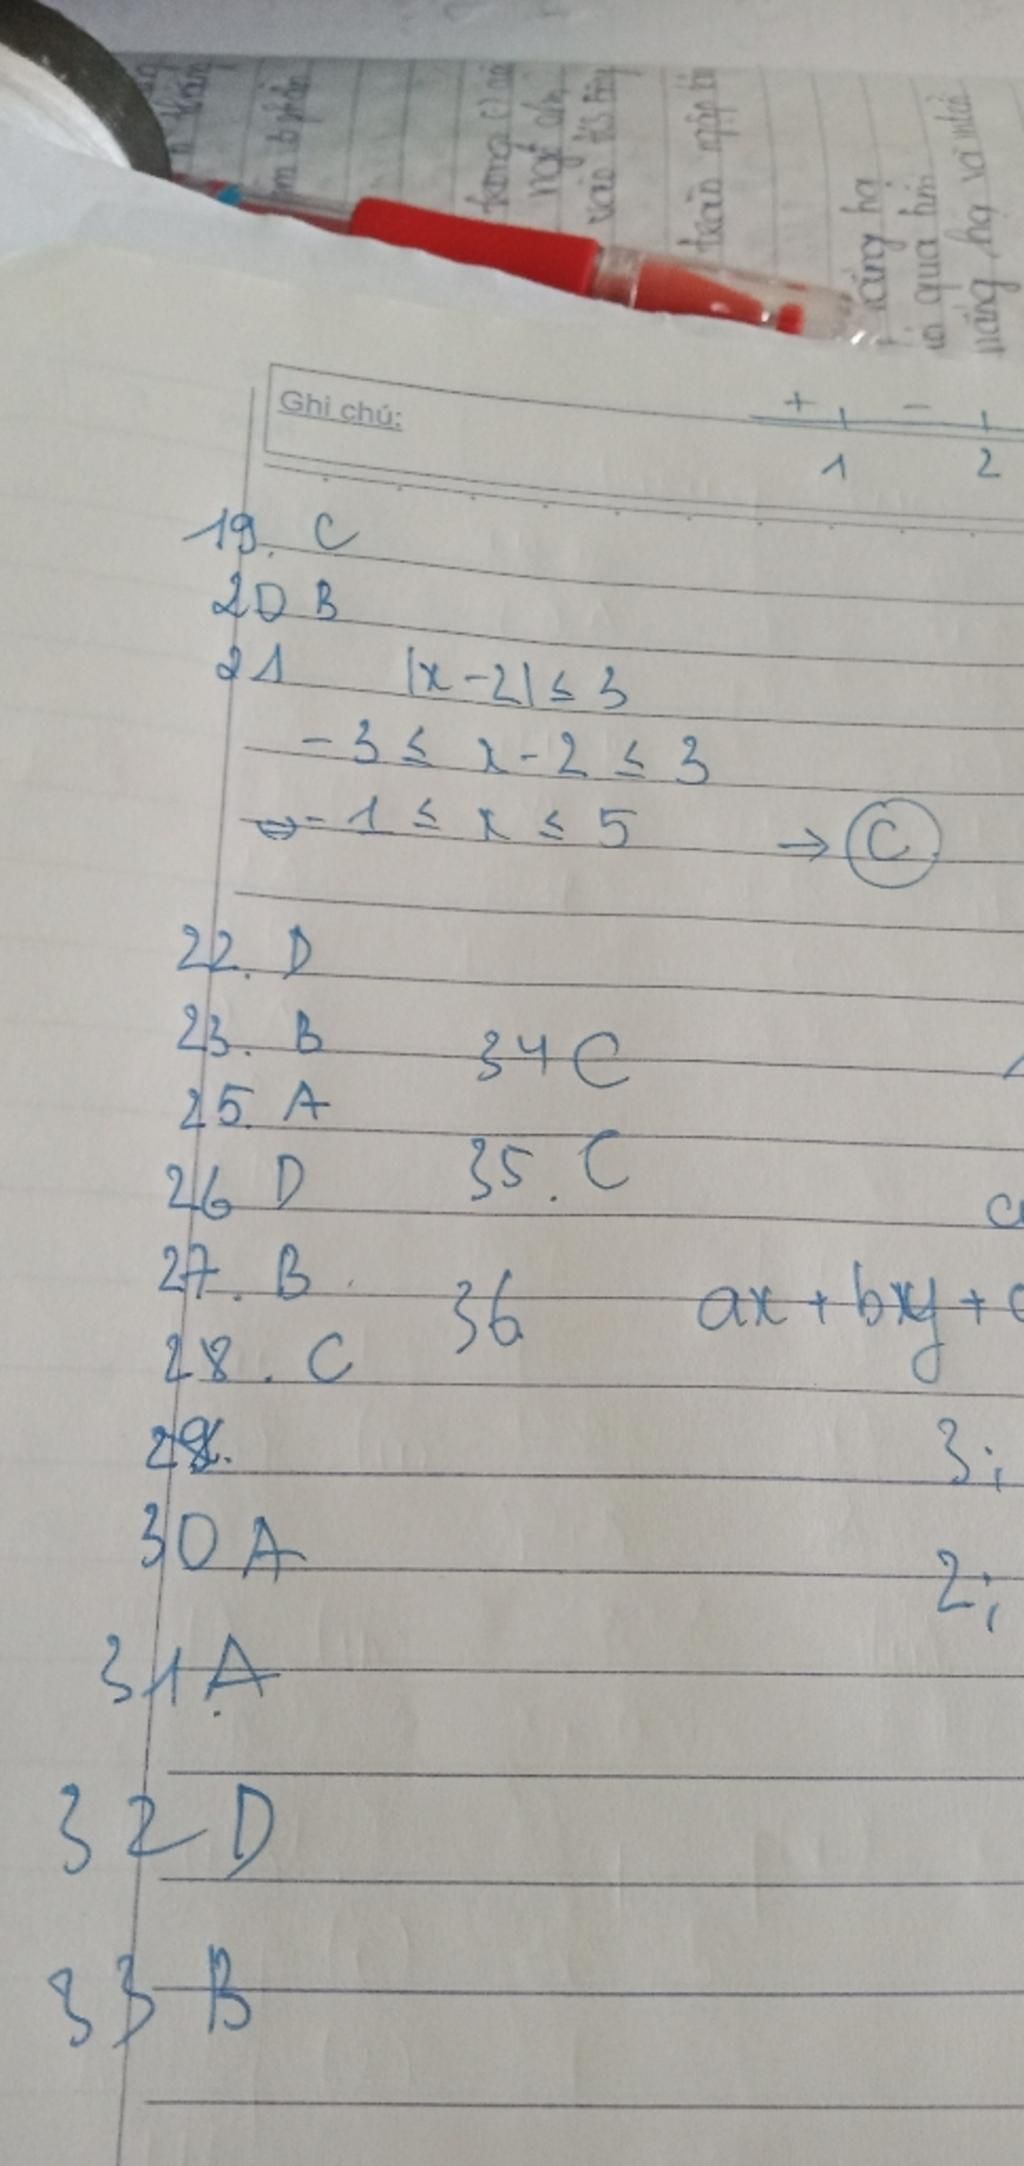 Ghi chú:
+ - 
1 2
19. C
20 B
21 |x-2| ≤ 3
-3 ≤ x-2 ≤ 3
⇔ -1 ≤ x ≤ 5 → C
22. D
23. B 34 C
25. A
26 D 35. C
27. B
28. C 36 ax + bxy +
29.
3;
30 A
2;
31 A
32 D
33 B